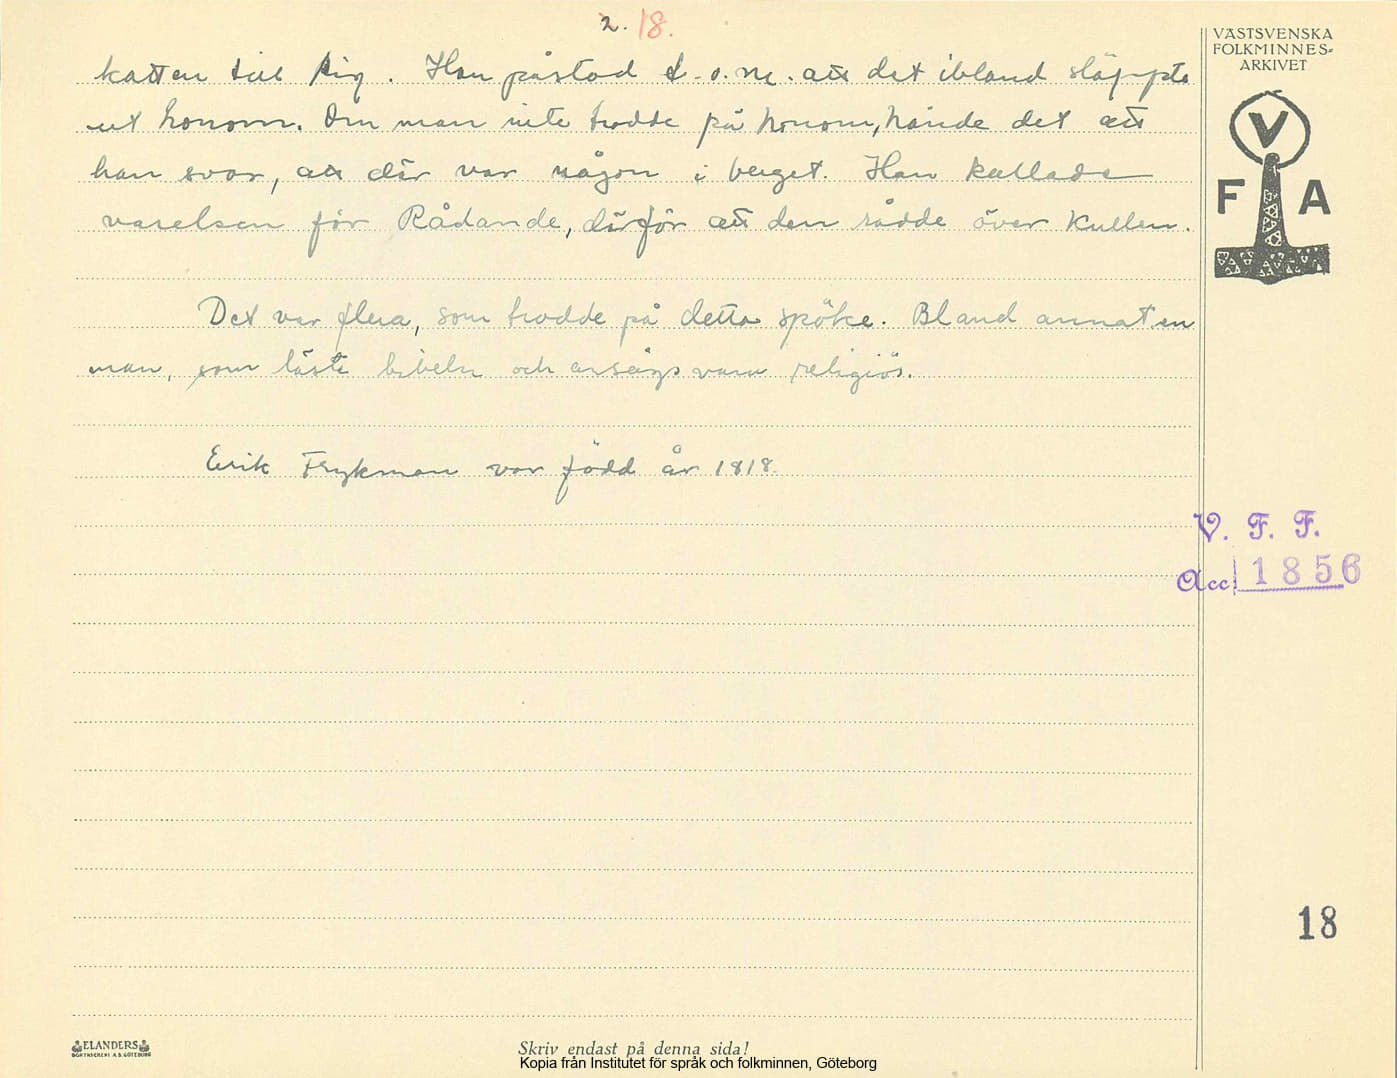 2. 18.
VÄSTSVENSKA
FOLKMINNES-
ARKIVET
katten till sig. Han påstod t.o.m. att det ibland släppte
ut honom. Om man inte trodde på honom, hände det att
han svor, att där var någon i berget. Han kallade
varelsen för Rådande, därför att den rådde över Kullen.
V
F A
Det var flera, som trodde på detta spöke. Bland annat en
man, som läste bibeln och ansågs vara religiös.
Erik Frykman var född år 1818.
V. F. F.
Acc. 1856
18
ELANDERS
BOKTRYCKERI A.B. GÖTEBORG
Skriv endast på denna sida!
Kopia från Institutet för språk och folkminnen, Göteborg